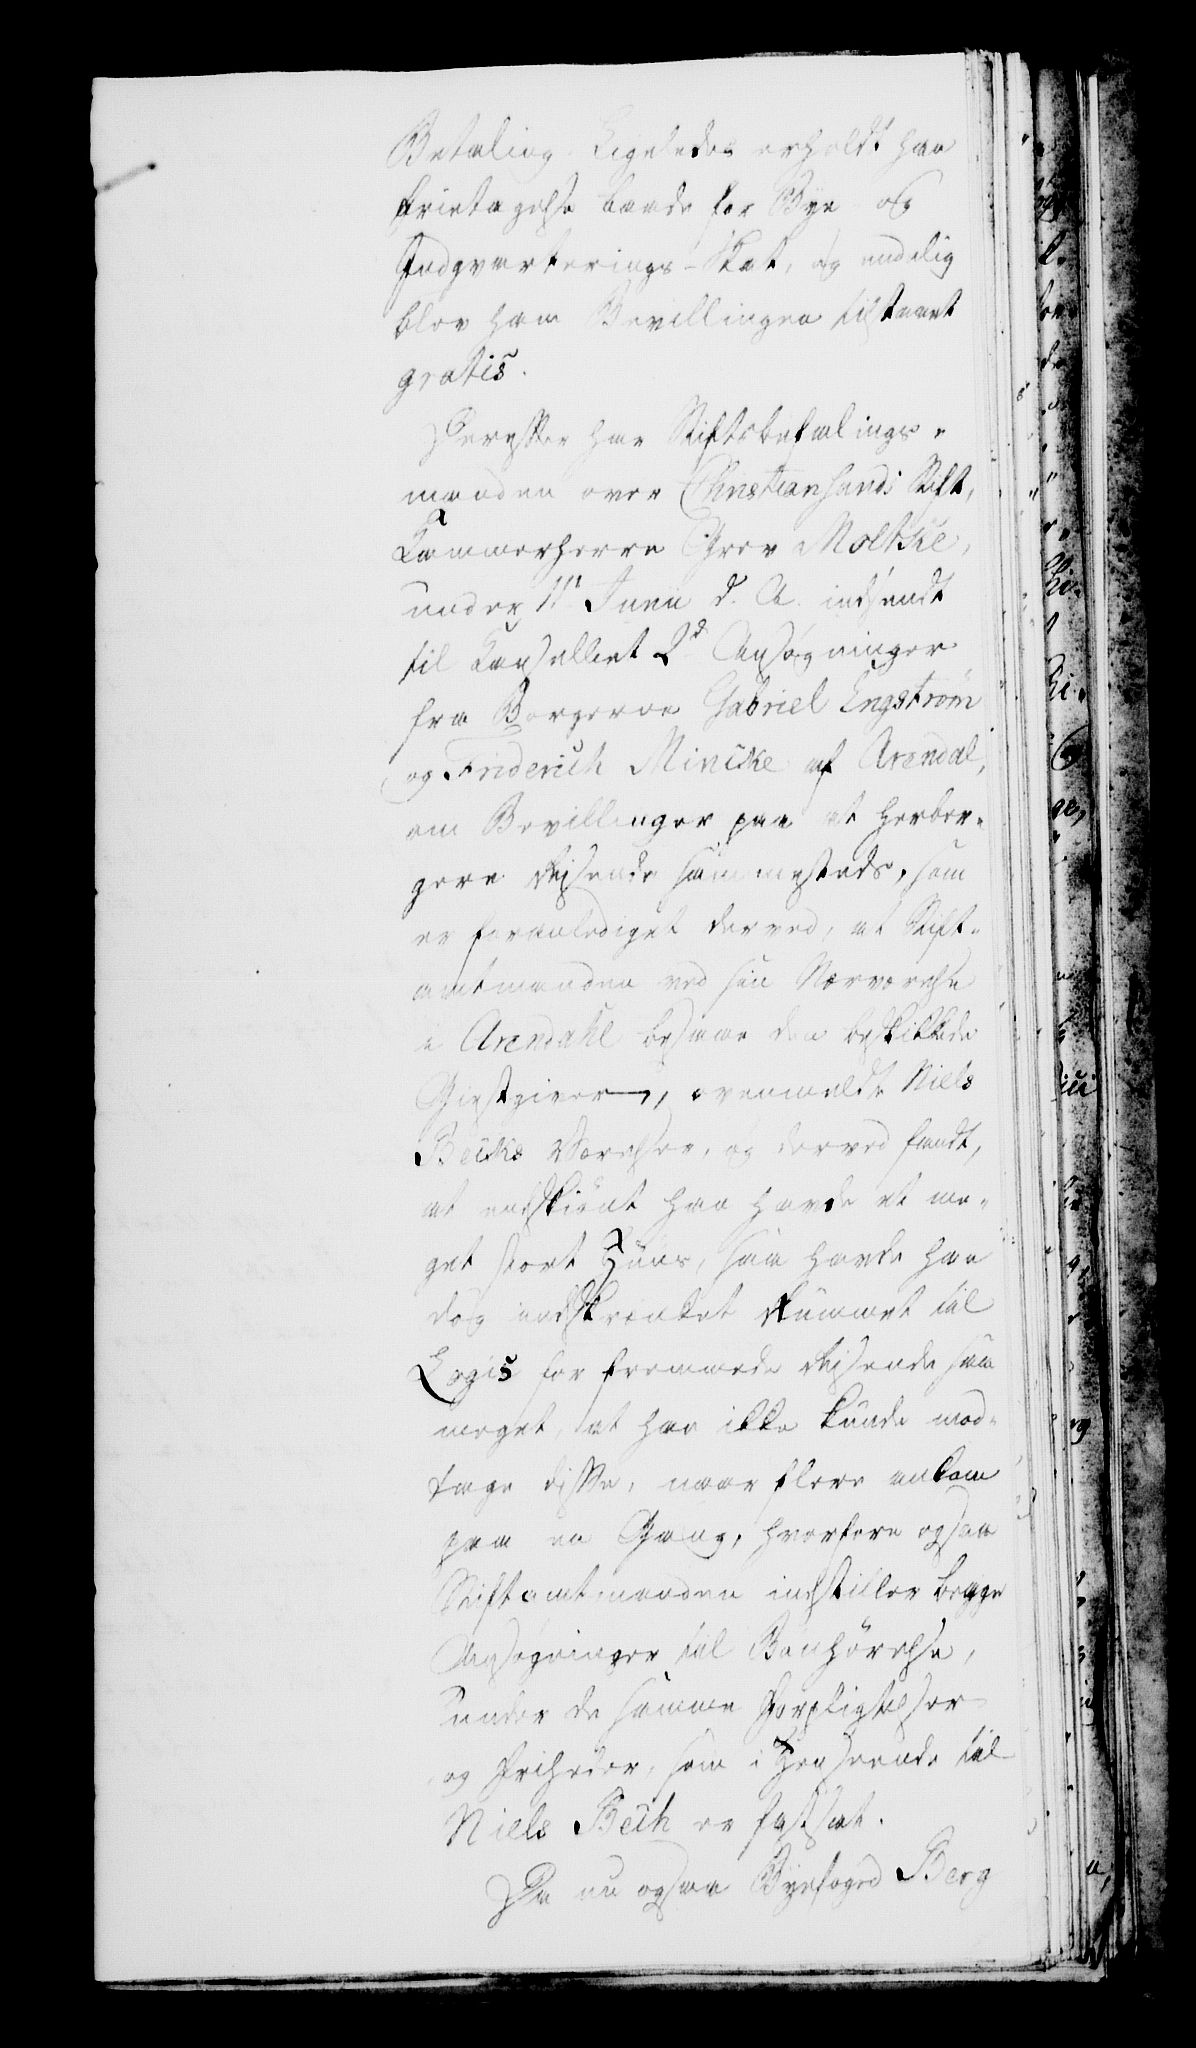 Betaling. Ligeledes erholdt han
Frietagelse baade for Bye- og
Indqvarterings-Skat, og endelig
blev ham Bevillingen tilstaaet
gratis.
Derefter har Stiftsbefalings-
manden over Christiansands Stift,
Kammerherre Grev Moltke,
under 11t Junii d. A. indsendt
til Cancelliet 2de Ansøgninger
fra Borgerne Gabriel Engstrøm
og Friderich Mincke af Arendal,
om Bevillinger paa at herber-
gere Rejsende sammesteds, som
er foranlediget derved, at Stift-
amtmanden ved sin Nærværelse
i Arendahl besaae den beskikkede
Giestgiver, ovenmeldte Niels
Becks Værelser, og derved fandt,
at endskiønt han havde et me-
get stort Huus, saa havde han
dog indskrænket Rummet til
Logis for fremmede Rejsende saa
meget, at han ikke kunde mod-
tage disse, naar flere ankom
paa en Gang, hvorfore ogsaa
Stiftamtmanden indstiller begge
Ansøgninger til Bønhørelse,
under de samme Forpligtelser
og Friheder, som i Henseende til
Niels Bech er fastsat.
Da nu ogsaa Byefoged Berg